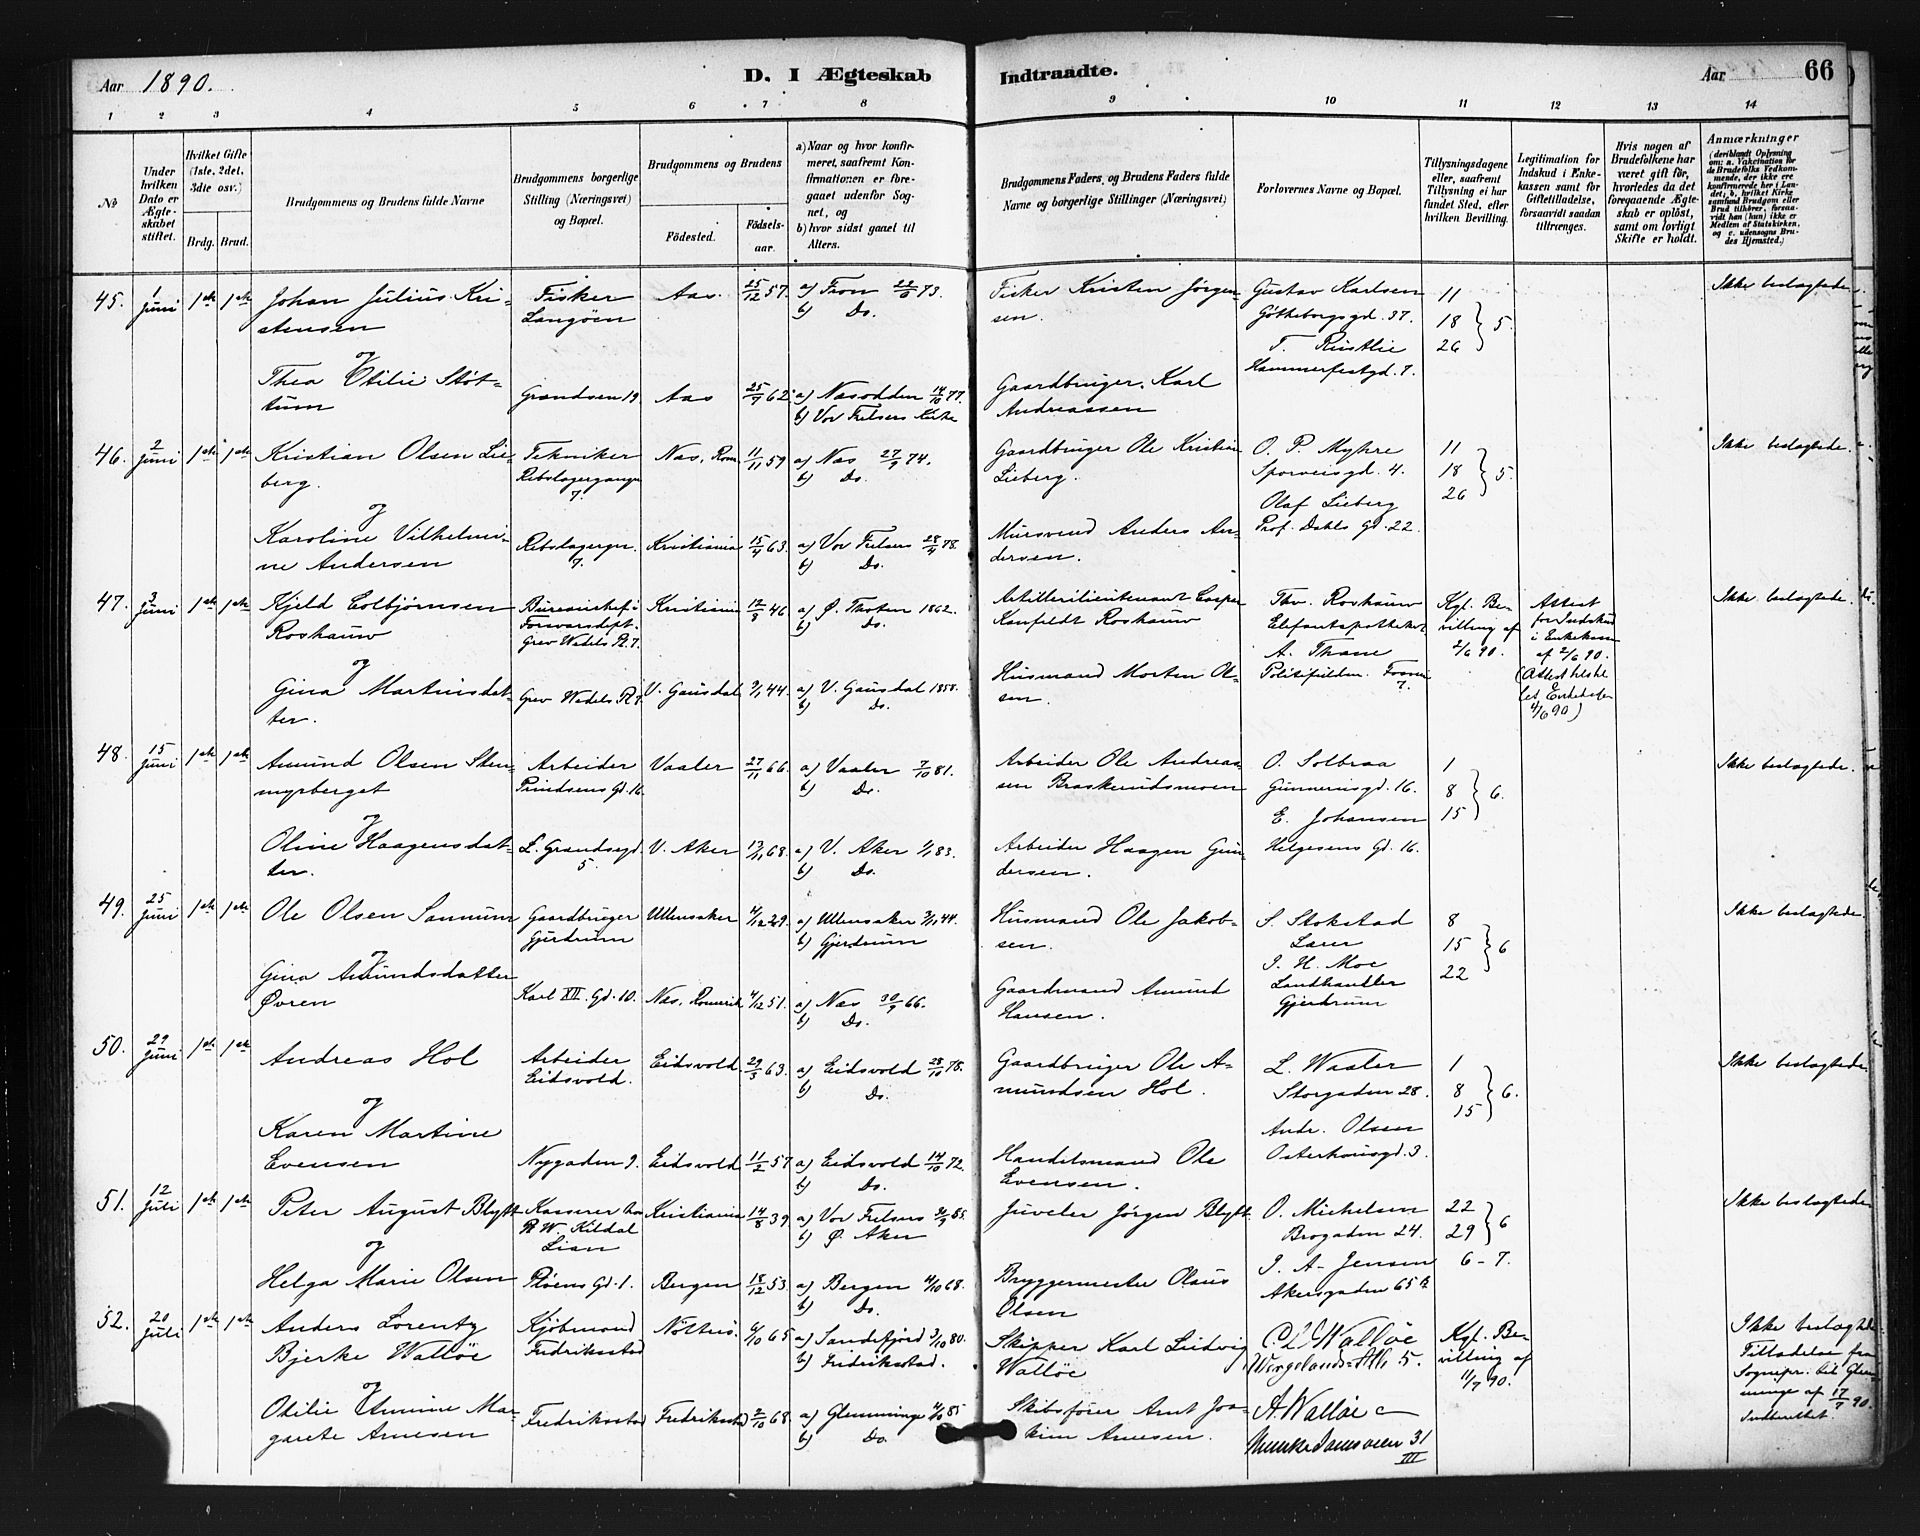 Aar 1890.
D. I Ægteskab
Indtraadte.
Aar
66
1 2 3 4 5 6 7 8 9 10 11 12 13 14
No
Under hvilken Dato er Ægteskabet stiftet.
Hvilket Gifte (1ste, 2det, 3die osv.)
Brdg. Brud.
Brudgommens og Brudens fulde Navne
Brudgommens borgerlige Stilling (Næringsvei) og Bopæl.
Brudgommens og Brudens
Födested.
Födselsaar.
a) Naar og hvor konfirmeret, saafremt Konfirmationen er foregaaet udenfor Sognet, og
b) hvor sidst gaaet til Alters.
Brudgommens Faders, og Brudens Faders fulde Navne og borgerlige Stillinger (Næringsvei)
Forlovernes Navne og Bopæl.
Tillysningsdagene eller, saafremt Tillysning ei har fundet Sted, efter hvilken Bevilling.
Legitimation for Indskud i Enkekassen samt for Giftetilladelse, forsaavidt saadan tiltrænges.
Hvis nogen af Brudefolkene har været gift før, hvorledes da det foregaaende Ægteskab er oplöst, samt om lovligt Skifte er holdt.
Anmærkninger
(deriblandt Oplysning om: a. Vakcination for de Brudefolks Vedkommende, der ikke ere konfirmerede her i Landet; b. hvilket Kirkesamfund Brudgom eller Brud tilhörer, forsaavidt han (hun) ikke er Medlem af Statskirken, og c. udensogns Brudes Hjemsted.)
45. 1 Juni 1ste 1ste
Johan Julius Kristensen
Fisker Langöen
Aas 25/12 57.
a) Fron 73.
b) Do.
Fisker Kristen Jörgensen.
Gustav Karlsen
Götheborgsgd. 37.
T. Rustlie
Hammerfestgd. 7.
11
18 } 5.
26
Ikke beslægtede
og
Thea Otilie Støttum
Grændsen 19
Aas 25/7 62.
a) Næsodden 14/10 77.
b) Vor Frelsers Kirke
Gaardbruger Karl Andreassen
46. 2 Juni 1ste 1ste
Kristian Olsen Lieberg.
Tekniker
7.
Næs, Rom. 11/11 59
a) Næs 27/9 74.
b) Do.
Gaardbruger Ole Kristian Lieberg.
O. P. Myhre
Sporveisgd. 4.
Olaf Lieberg
Prof. Dahls Gd. 22.
11
18 } 5.
26
Ikke beslægtede.
og
Karoline Vilhelmine Andersen
7.
Kristiania 63.
a) Vor Frelsers 28/4 78.
b) Do.
Mursvend Anders Andersen.
47. 3 Juni 1ste 1ste
Kjeld Colbjörnsen Roshauw
Bureauchef i Forsvarsdept.
Grev Wedels Pl. 7.
Kristiania 46
a) Ø. Thoten 1862.
b) Do.
Artillerilieutenant Casper Roshauw
Thv. Roshauw
Elefantapotheket
A. Thrane
Kgl. Bevilling af 2/6 90.
Attest for Indskud i Enkekassen af 2/6 90.
4/6 90)
Ikke beslægtede.
og
Gina Martinsdatter.
Grev Wedels Pl. 7
V. Gausdal 44.
a) V. Gausdal 1858.
b) Do.
Husmand Morten Olsen.
48. 15 Juni 1ste 1ste
Amund Olsen Stenmyrberget
Arbeider
Prindsens Gd. 16.
Vaaler 27/11 66.
a) Vaaler 7/10 81.
b) Do.
Arbeider Ole Andreassen Braskerudsmoen
O. Solbraa
Gunnerusgd. 16.
E. Johansen
Helgesens Gd. 16.
1
8 } 6.
15
Ikke beslægtede.
og
Oline Haagensdatter.
L. Grændsegd. 5
V. Aker 68.
a) V. Aker 83.
b) Do.
Arbeider Haagen Gundersen.
49. 25 Juni 1ste 1ste
Ole Olsen Sannum
Gaardbruger Gjerdrum
Ullensaker 4/12 29.
a) Ullensaker 44.
b) Gjerdrum
Husmand Ole Jakobsen.
S. Stokstad
Lærer
J. H. Moe
Landhandler
Gjerdrum
8
15 } 6
22
Ikke beslægtede.
og
Gina Amundsdatter Øvren
Karl XII. Gd. 10.
Næs, Romerike 4/12 51.
a) Næs 30/9 66.
b) Do.
Gaardmand Amund Hansen.
50. 29 Juni 1ste 1ste
Andreas Hol
Arbeider
Eidsvold.
Eidsvold. 29/3 63.
a) Eidsvold 28/10 78.
b) Do.
Gaardbruger Ole Amundsen Hol.
L. Waaler
Storgaden 28.
Andr. Olsen
Osterhausgd. 3.
1
8 } 6.
15
Ikke beslægtede.
og
Karen Martine Evensen
Nygaden 9.
Eidsvold 11/2 57
a) Eidsvold 14/10 72.
b) Do.
Handelsmand Ole Evensen.
51. 12 Juli 1ste 1ste
Peter August Blytt
Kasserer hos P. W. Kildal
Lian
Kristiania 14/8 39
a) Vor Frelsers 55.
b) Ø. Aker
Juveler Jörgen Blytt.
O. Michelsen
Brogaden 24.
J. A. Jensen
Akersgaden 65 b
22
29 } 6
6 - 7.
Ikke beslægtede
og
Helga Marie Olsen
Pløens Gd. 1.
Bergen 18/12 53.
a) Bergen 4/10 68.
b) Do.
Bryggermester Olaus Olsen
52. 20 Juli 1ste 1ste
Anders Lorentz Bjerke Walløe
Kjöbmand
Fredriksstad
Nötterö. 6/10 65
a) Sandefjord 3/10 80.
b) Fredriksstad.
Skipper Karl Ludvig Walløe
C. L. Walløe
Wergelands-Alle 5.
A. Walløe
Munkedamsveien 31
III
Kgl. Bevilling af 11/7 90.
Ikke beslægtede
Tilladelse fra Sognepr. til Glemminge af 17/7 90.
Indberettet.
og
Othilie Amine Margarete Arnesen
Fredriksstad
Fredriksstad 2/10 68.
a) Glemminge 4/10 85
b) Do.
Skibsfører Arnt Joakim Arnesen.